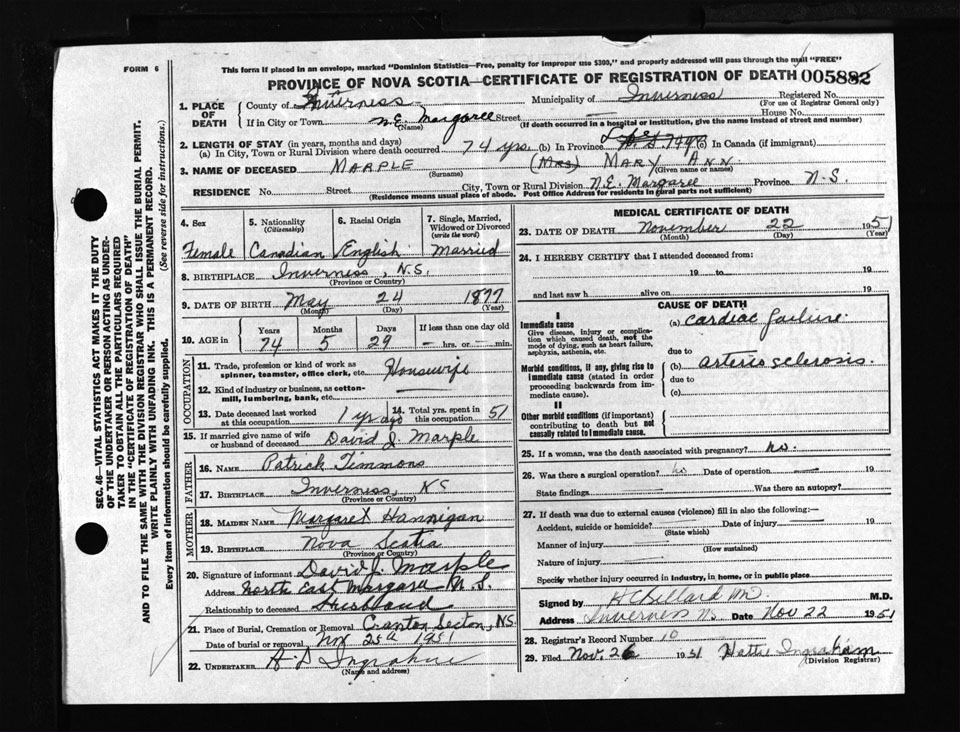 FORM 6
This form if placed in an envelope, marked "Dominion Statistics—Free, penalty for improper use $300," and properly addressed will pass through the mail "FREE"
PROVINCE OF NOVA SCOTIA—CERTIFICATE OF REGISTRATION OF DEATH 005882
1. PLACE OF DEATH County of Inverness Municipality of Inverness Registered No. (For use of Registrar General only)
If in City or Town N.E. Margaree Street House No.
(Name) (If death occurred in a hospital or institution, give the name instead of street and number)
2. LENGTH OF STAY (in years, months and days)
(a) In City, Town or Rural Division where death occurred 74 yrs. (b) In Province (c) In Canada (if immigrant)
3. NAME OF DECEASED MARPLE (Mrs) MARY ANN
(Surname) (Given name or names)
RESIDENCE No. Street City, Town or Rural Division N.E. Margaree Province N.S.
(Residence means usual place of abode. Post Office Address for residents in rural parts not sufficient)
SEC. 46—VITAL STATISTICS ACT MAKES IT THE DUTY
OF THE UNDERTAKER OR PERSON ACTING AS UNDER-
TAKER TO OBTAIN ALL THE PARTICULARS REQUIRED
IN THE "CERTIFICATE OF REGISTRATION OF DEATH"
AND TO FILE THE SAME WITH THE DIVISION REGISTRAR WHO SHALL ISSUE THE BURIAL PERMIT.
WRITE PLAINLY WITH UNFADING INK. THIS IS A PERMANENT RECORD.
Every item of Information should be carefully supplied. (See reverse side for instructions.)
4. Sex 5. Nationality (Citizenship) 6. Racial Origin 7. Single, Married, Widowed or Divorced (write the word)
Female Canadian English Married
8. BIRTHPLACE Inverness, N.S.
(Province or Country)
9. DATE OF BIRTH May 24 1877
(Month) (Day) (Year)
10. AGE in Years Months Days If less than one day old
74 5 29 – hrs. or – min.
OCCUPATION
11. Trade, profession or kind of work as spinner, teamster, office clerk, etc. Housewife
12. Kind of industry or business, as cotton-mill, lumbering, bank, etc.
13. Date deceased last worked at this occupation 1 yr ago 14. Total yrs. spent in this occupation 51
15. If married give name of wife or husband of deceased David J. Marple
FATHER
16. NAME Patrick Timmons
17. BIRTHPLACE Inverness, NS
(Province or Country)
MOTHER
18. MAIDEN NAME Margaret Hannigan
19. BIRTHPLACE Nova Scotia
(Province or Country)
20. Signature of informant David J. Marple
Address North East Margaree N.S.
Relationship to deceased Husband
21. Place of Burial, Cremation or Removal Cranton Section, NS
Date of burial or removal Nov 25th 1951
22. UNDERTAKER
(Name and address)
MEDICAL CERTIFICATE OF DEATH
23. DATE OF DEATH November 22 1951
(Month) (Day) (Year)
24. I HEREBY CERTIFY that I attended deceased from:
19 to 19
and last saw h alive on 19
CAUSE OF DEATH
I
Immediate cause (a) cardiac failure.
Give disease, injury or complication which caused death, not the mode of dying, such as heart failure, asphyxia, asthenia, etc.
due to
Morbid conditions, if any, giving rise to immediate cause (stated in order proceeding backwards from immediate cause). (b) arteriosclerosis.
due to
(c)
II
Other morbid conditions (if important) contributing to death but not causally related to immediate cause.
25. If a woman, was the death associated with pregnancy? no.
26. Was there a surgical operation? no Date of operation 19
State findings Was there an autopsy?
27. If death was due to external causes (violence) fill in also the following:—
Accident, suicide or homicide? Date of injury 19
(State which)
Manner of injury
(How sustained)
Nature of injury
Specify whether injury occurred in industry, in home, or in public place
Signed by M.D.
Address Inverness NS Date Nov 22 1951
28. Registrar's Record Number 10
29. Filed Nov. 26 1951 Hattie Ingraham
(Division Registrar)